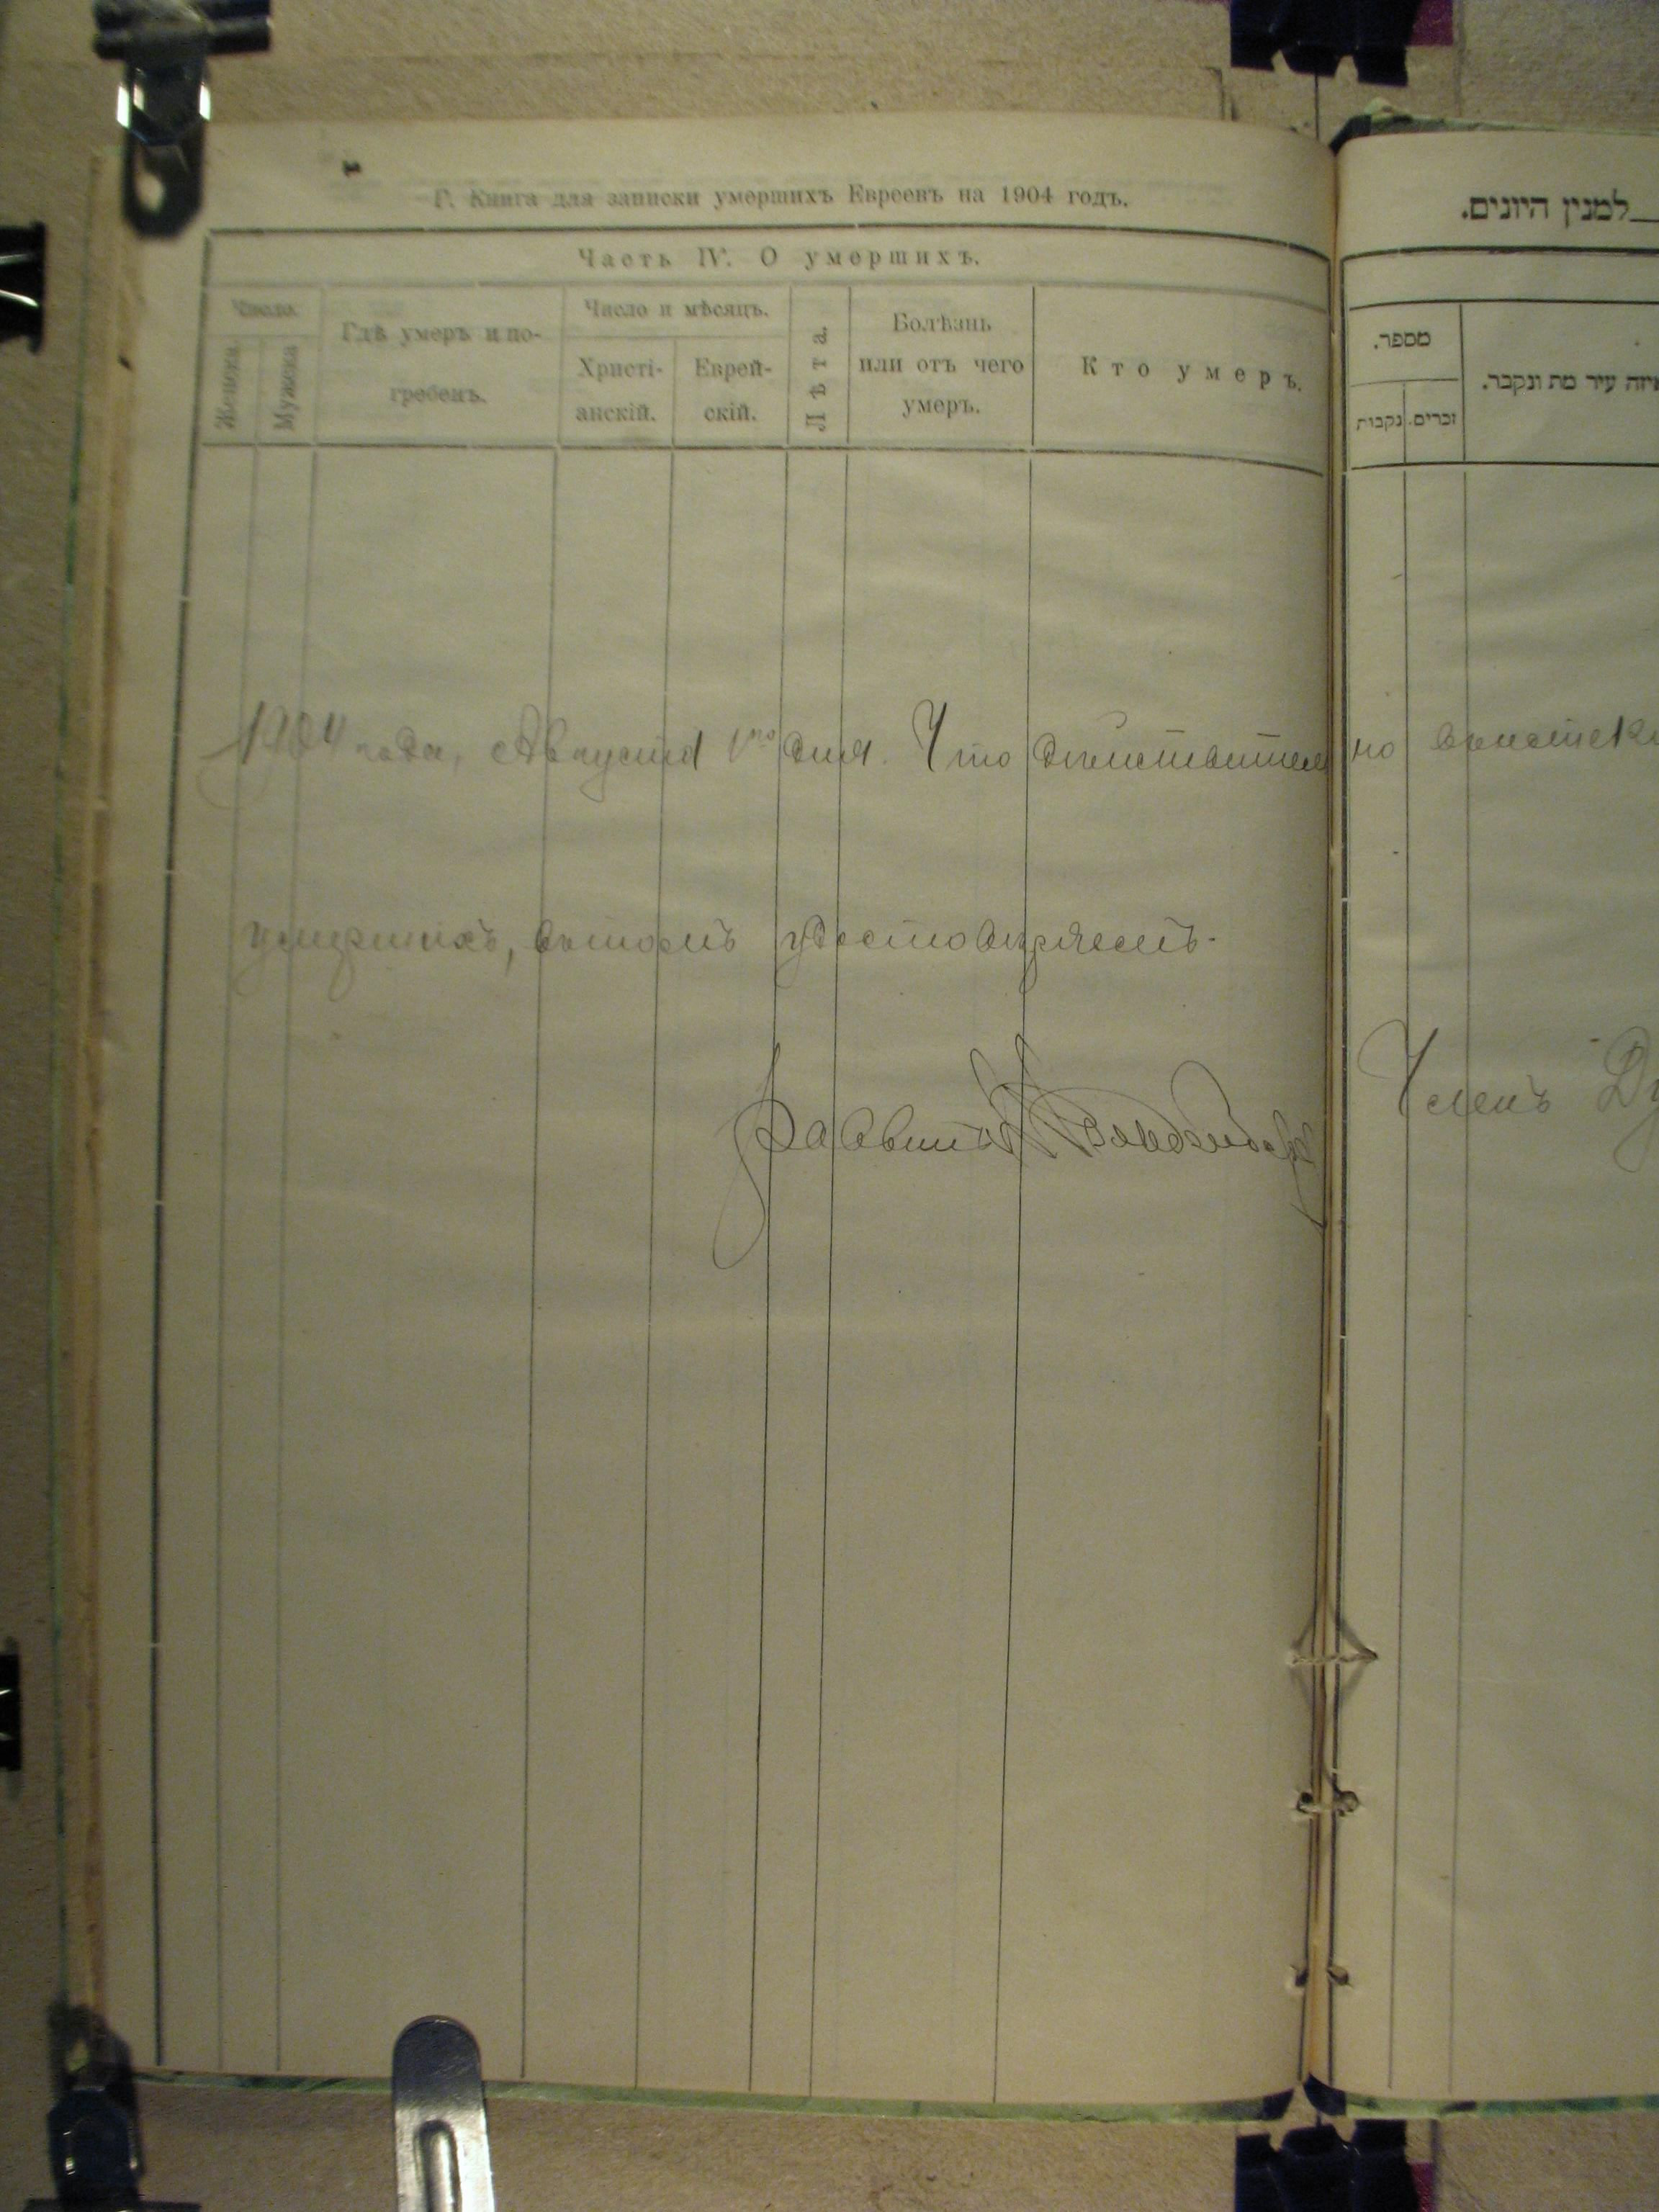 Г. Книга для записки умершихъ Евреевъ на 1904 годъ.
Часть IV. О умершихъ.
Число.
Женска
Мужеска
Гдѣ умеръ и по-
гребенъ.
Число и мѣсяцъ.
Христі-
анскій.
Еврей-
скій.
Лѣта.
Болѣзнь
или отъ чего
умеръ.
Кто умеръ.
1904 года, Августа 1го дня. Что действительно
умершихъ, въ томъ удостоверяемъ.
Раввинъ
למנין היונים.
מספר.
זכרים.
נקבות
איזה עיר מת ונקבר.
Членъ